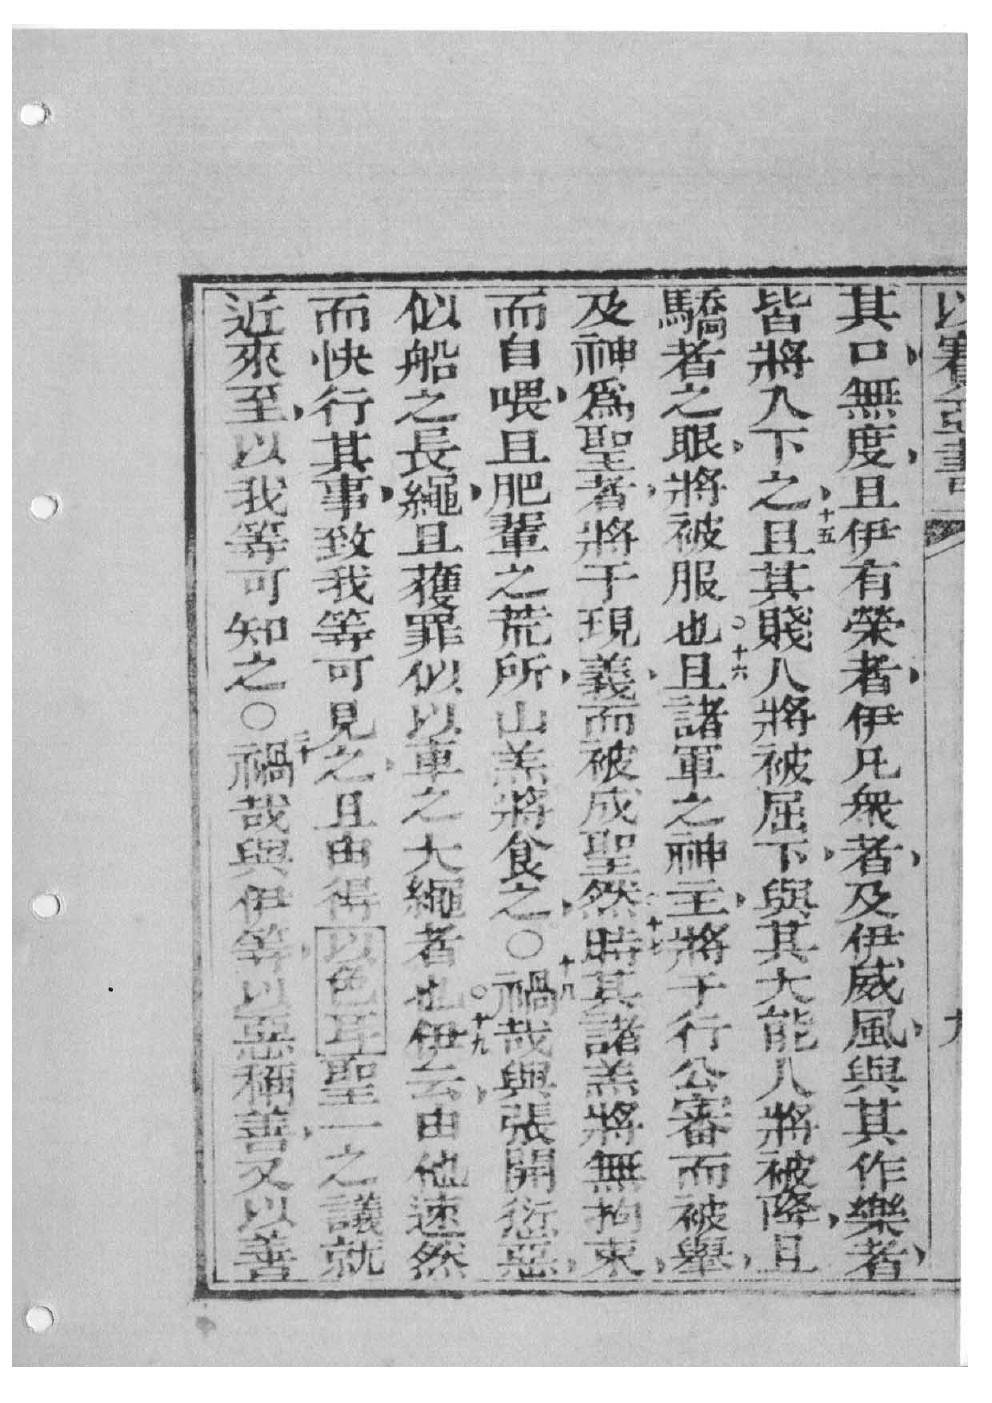 以賽亞書 九
其口無度且伊有榮者伊凡衆者及伊威風與其作樂者
皆將入下之十五且其賤人將被屈下與其大能人將被降且
驕者之眼將被服也○十六且諸軍之神主將于行公審而被舉
及神爲聖者將于現義而被成聖然十七時其諸羔將無拘束
而自喂且肥輩之荒所山羔將食之○十八禍哉與張開愆惡
似船之長繩且獲罪似以車之大繩者也○十九伊云由他速然
而快行其事致我等可見之且由得以色耳聖一之議就
近來至以我等可知之○二十禍哉與伊等以惡稱善又以善